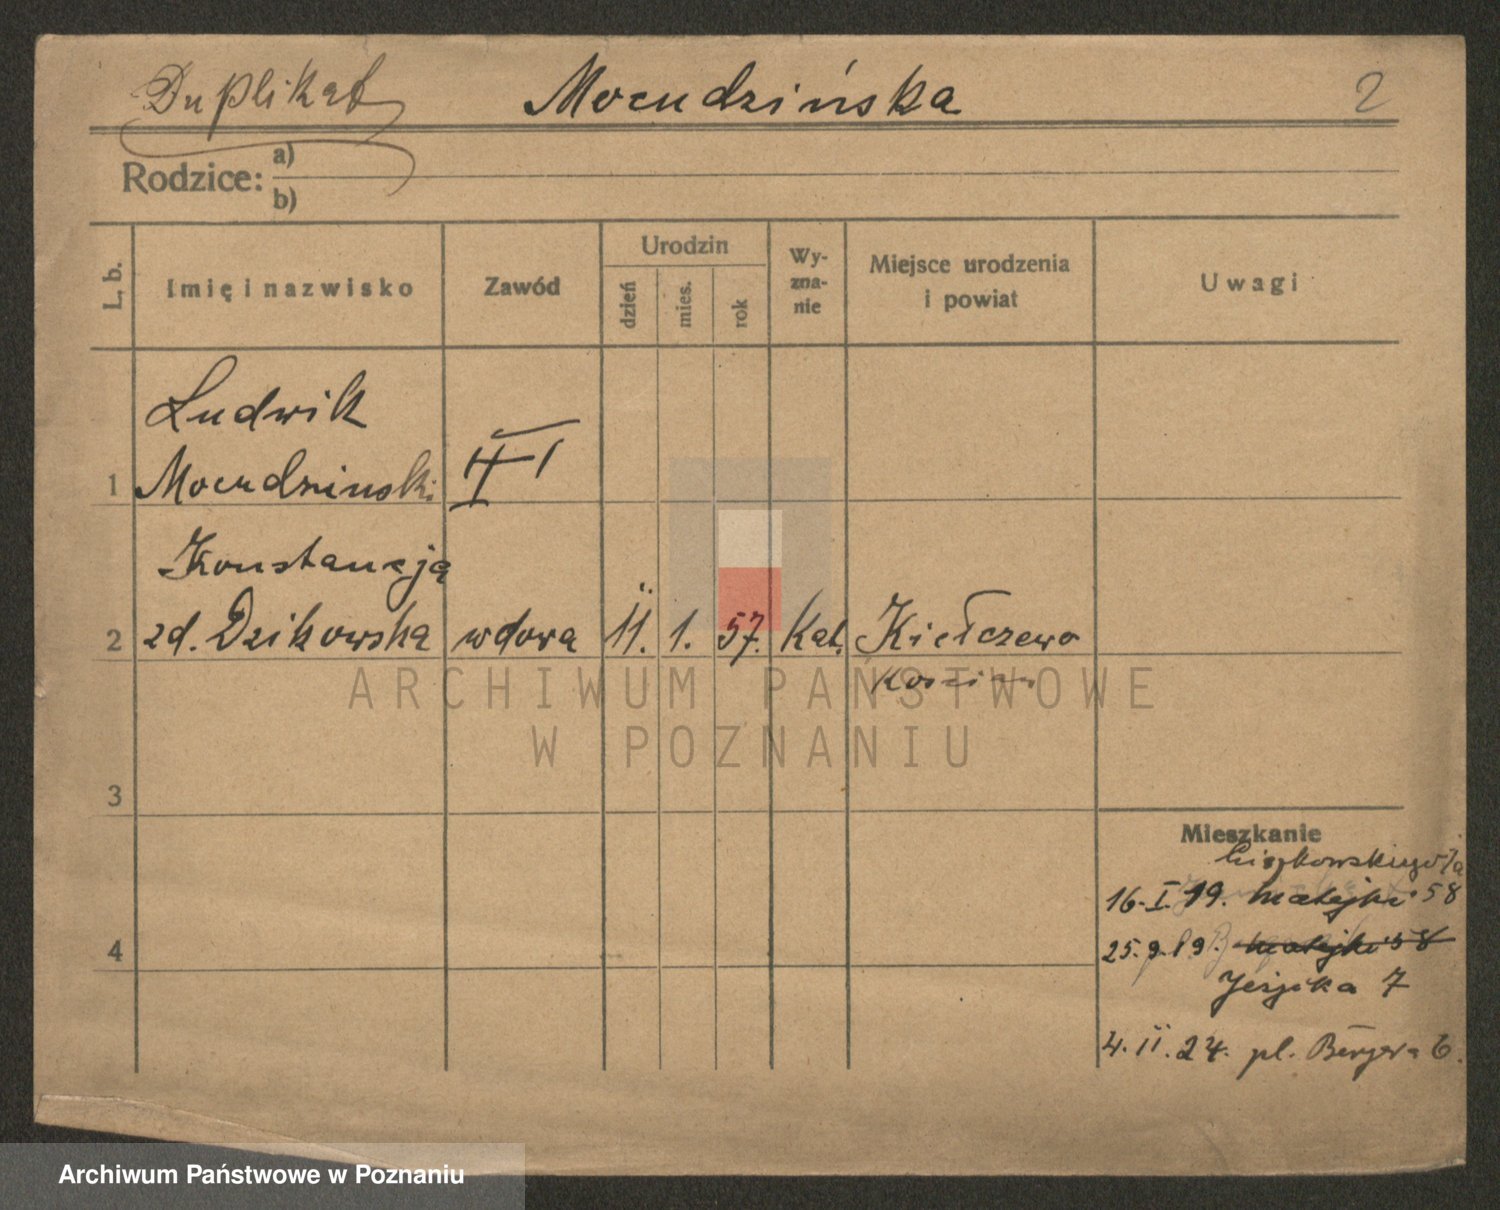 Duplikat Mocudzińska 2
Rodzice: a)
b)
L. b. Imię i nazwisko Zawód Urodzin dzień mies. rok Wy-zna-nie Miejsce urodzenia i powiat Uwagi
Ludwik
1 Mocudzinski
Konstancja
2 zd. Dzikowska wdowa 11. 1. 57. Kat. Kiełczewo
ARCHIWUM PAŃSTWOWE
W POZNANIU
3
Mieszkanie
16. I. 19. Matejki 58
4
25. 9. 19. Matejki 58
7
4. II. 24. pl. Bergera 6.
Archiwum Państwowe w Poznaniu